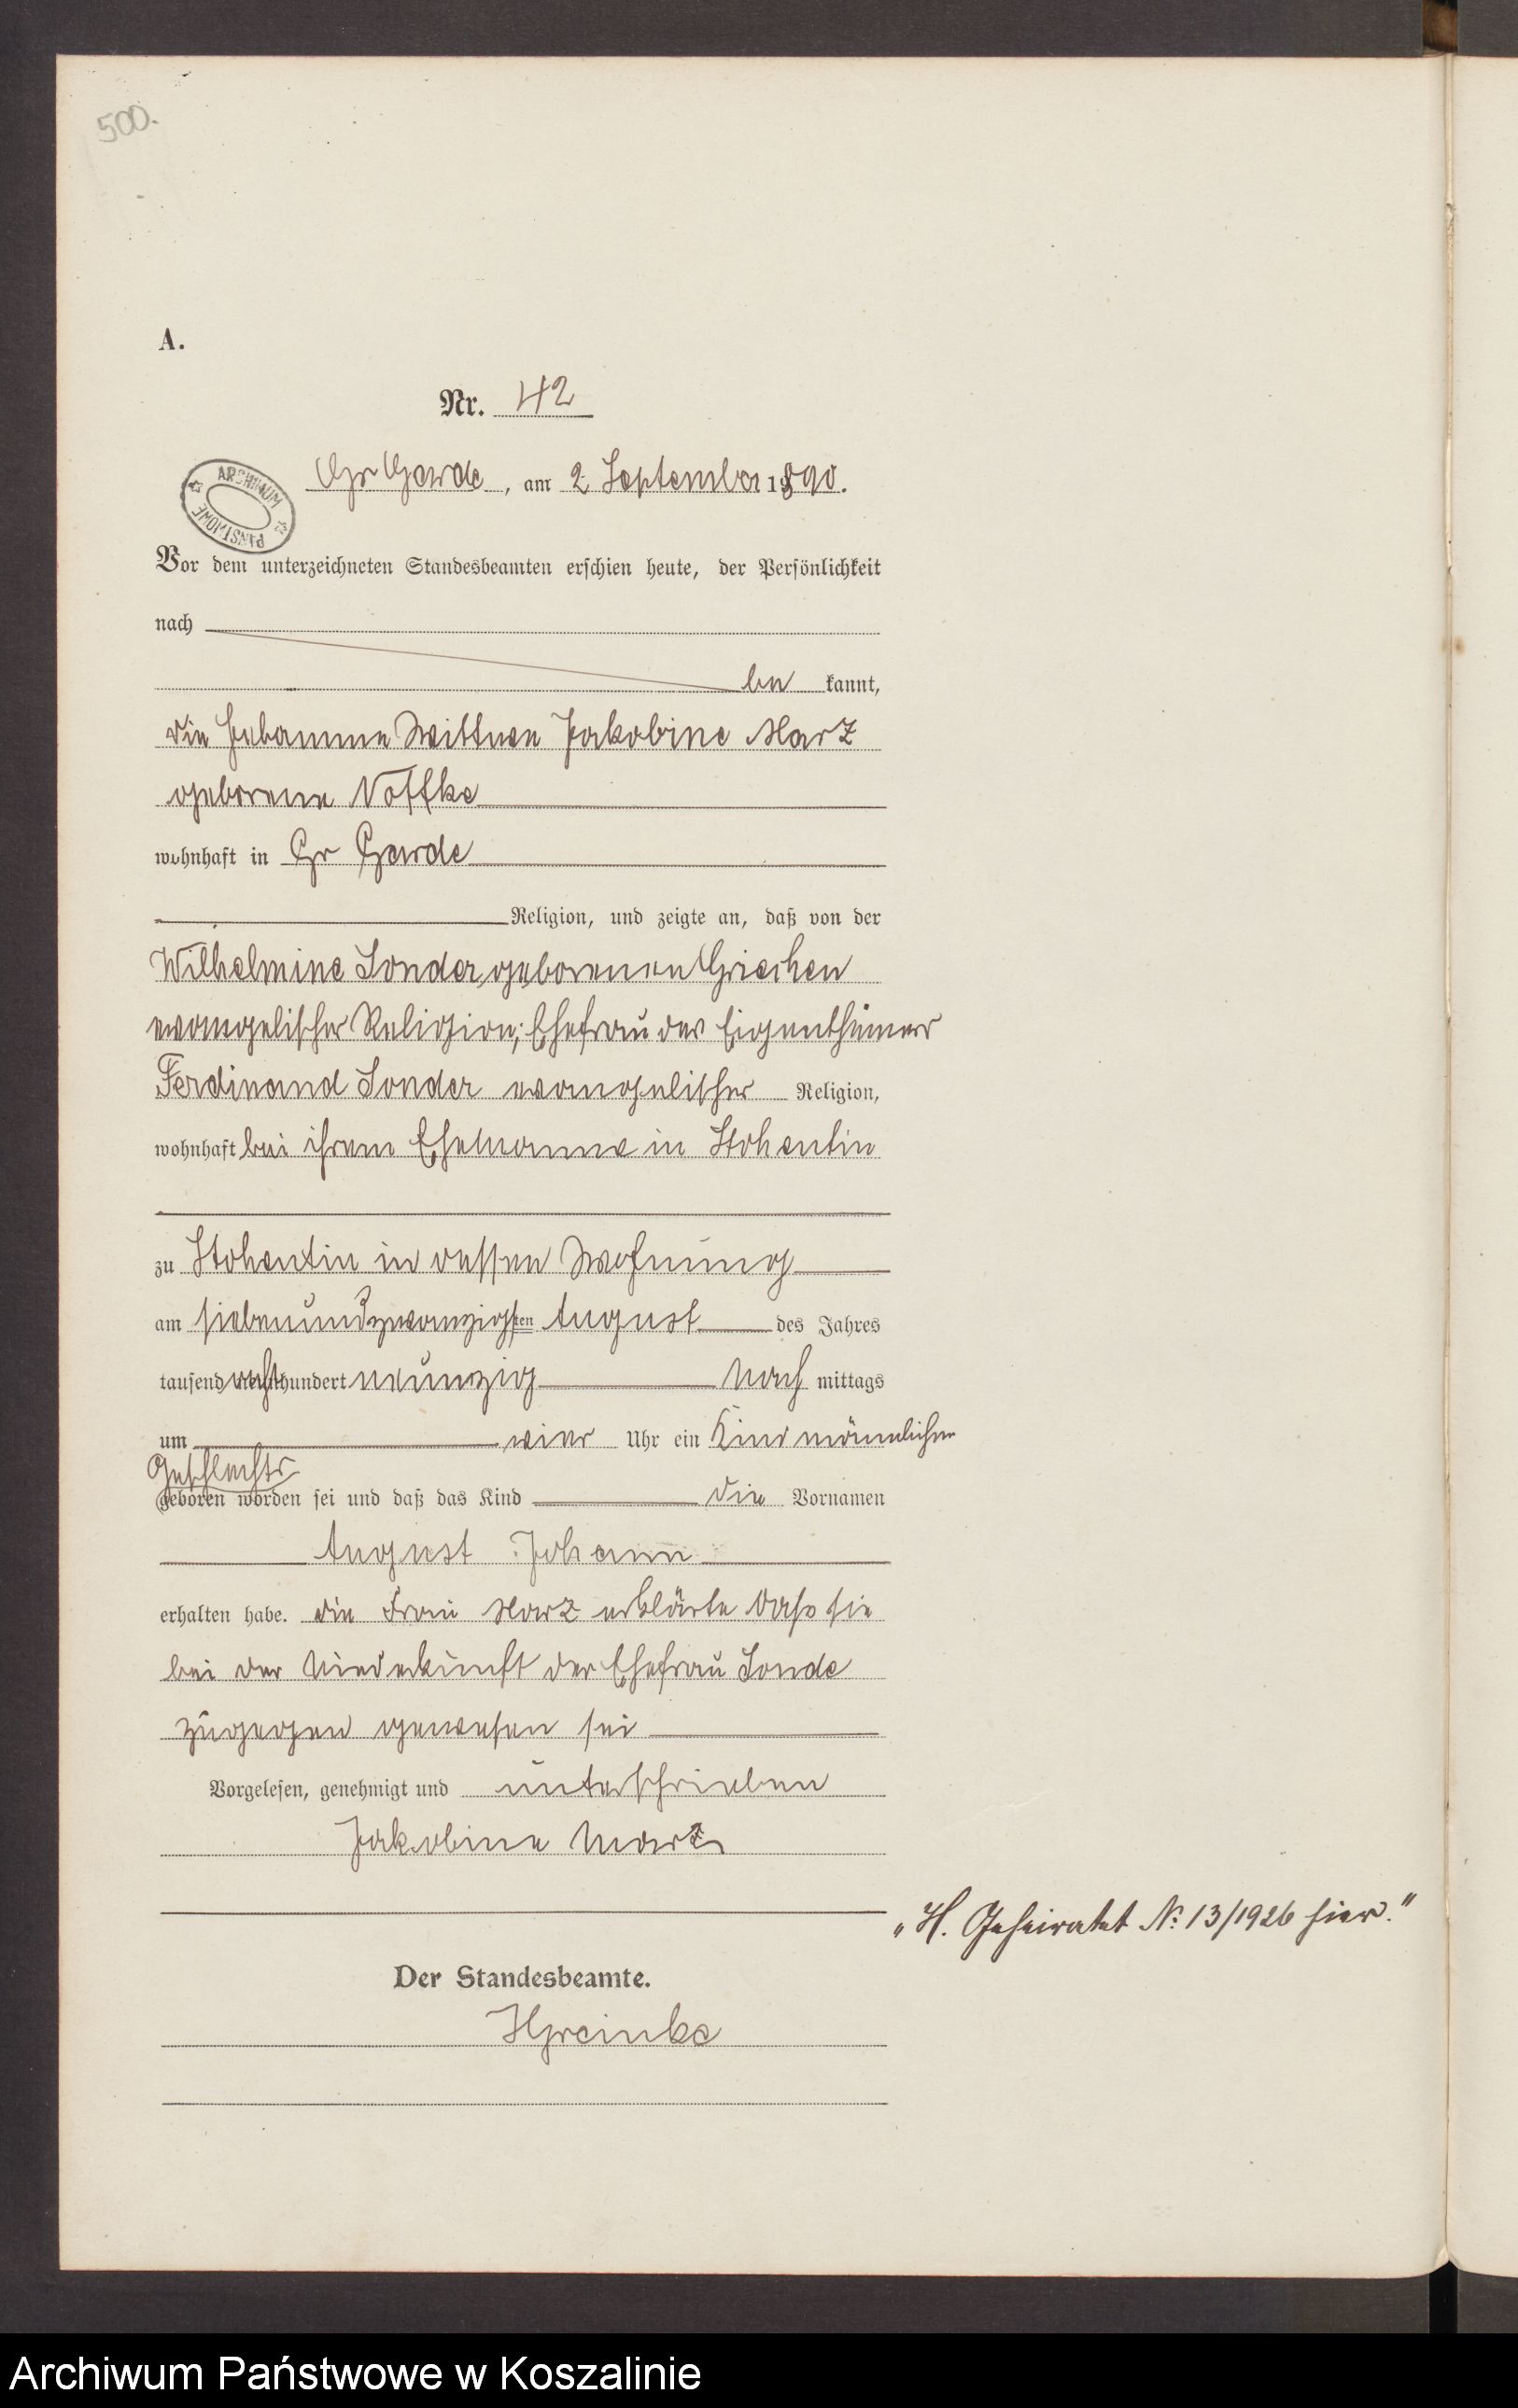 500.
A.
Nr. 42
ARCHIWUM PAŃSTWOWE
Gr Garde, am 2 September 1890.
Vor dem unterzeichneten Standesbeamten erschien heute, der Persönlichkeit
nach
be kannt,
die Hebamme Wittwe Jakobine Marz
geborene Noffke
wohnhaft in Gr Garde
Religion, und zeigte an, daß von der
Wilhelmine Sonder, geborenen Griechen
evangelischer Religion, Ehefrau des Eigenthümers
Ferdinand Sonder evangelischer Religion,
wohnhaft bei ihrem Ehemanne in Stohentin
zu Stohentin in dessen Wohnung
am siebenundzwanzigsten August des Jahres
tausend achthundert neunzig Nach mittags
um vier Uhr ein Kind männlichen
Geschlechts
geboren worden sei und daß das Kind die Vornamen
August Johann
erhalten habe. die Frau Marz erklärte dass sie
bei der Niederkunft der Ehefrau Sonde
zugegen gewesen sei
Vorgelesen, genehmigt und unterschrieben
Jakobine Marz
„H. Geheiratet No 13/1926 hier."
Der Standesbeamte.
Archiwum Państwowe w Koszalinie